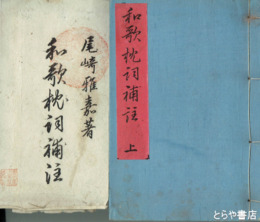 尾崎雅嘉著
和歌枕詞補註
和歌枕詞補註 上
とらや書房